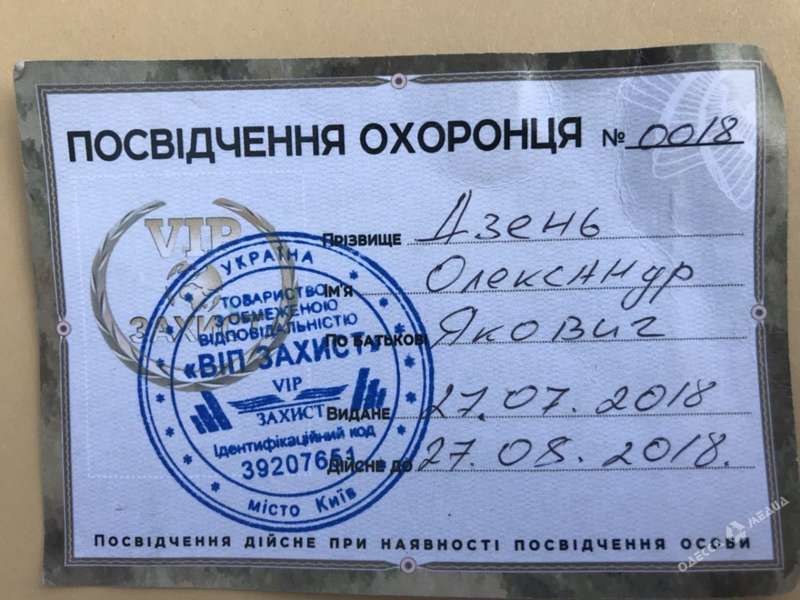 ПОСВІДЧЕННЯ ОХОРОНЦЯ № 0018
VIP
ЗАХИСТ
Прізвище Дзень
Ім'я Олександр
По батькові Якович
Видане 27.07.2018
Дійсне до 27.08.2018.
УКРАЇНА
ТОВАРИСТВО
З ОБМЕЖЕНОЮ
ВІДПОВІДАЛЬНІСТЮ
«ВІП ЗАХИСТ»
VIP
ЗАХИСТ
Ідентифікаційний код
39207651
місто Київ
ПОСВІДЧЕННЯ ДІЙСНЕ ПРИ НАЯВНОСТІ ПОСВІДЧЕННЯ ОСОБИ
ОДЕССА МЕДИА